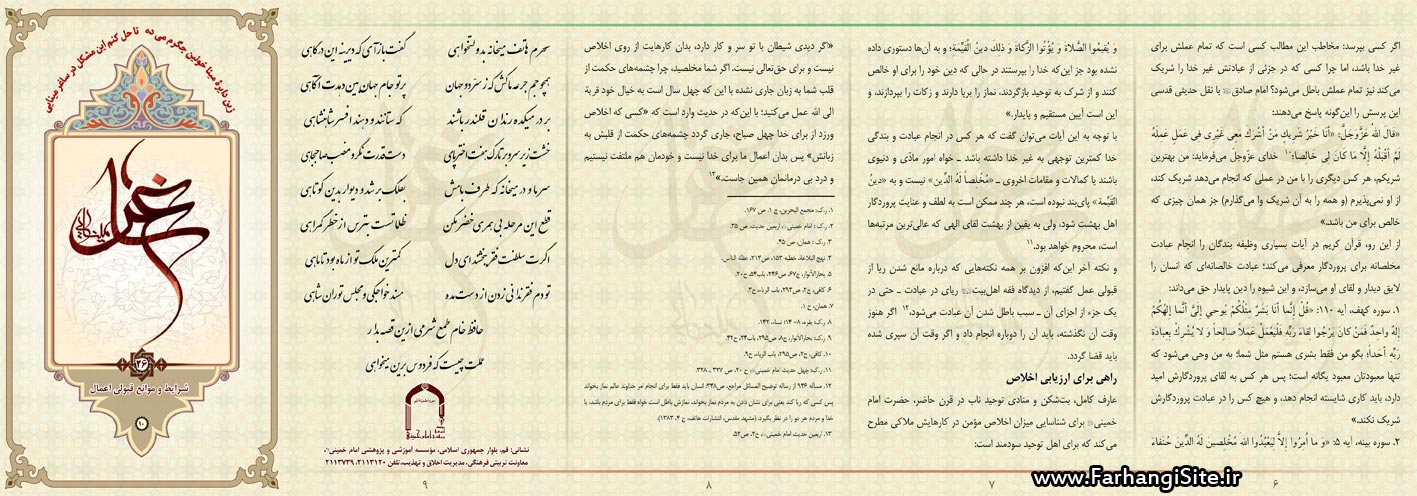 اگر کسی بپرسد: مخاطب این مطالب کسی است که تمام عملش برای
غیر خدا باشد، اما چرا کسی که در جزئی از عبادتش غیر خدا را شریک
می‌کند نیز تمام عملش باطل می‌شود؟ امام صادق با نقل حدیثی قدسی
این پرسش را این‌گونه پاسخ می‌دهند:
«قال الله عَزَّوَجَلَّ: «أَنَا خَیْرُ شَرِیكٍ مَنْ أَشْرَكَ مَعِی غَیْرِی فِی عَمَلٍ عَمِلَهُ
لَمْ أَقْبَلْهُ إِلَّا مَا كَانَ لِی خَالِصاً»؛ خدای عزّوجلّ می‌فرماید: من بهترین
شریکم، هر کس دیگری را با من در عملی که انجام می‌دهد شریک کند،
از او نمی‌پذیرم (و همه را به آن شریک وا می‌گذارم) جز همان چیزی که
خالص برای من باشد.»
از این رو، قرآن کریم در آیات بسیاری وظیفه بندگان را انجام عبادت
مخلصانه برای پروردگار معرفی می‌کند؛ عبادت خالصانه‌ای که انسان را
لایق دیدار و لقای او می‌سازد، و این شیوه را دین پایدار حق می‌داند:
۱. سوره کهف، آیه ۱۱۰: «قُلْ إِنَّما أَنَا بَشَرٌ مِثْلُكُمْ یُوحی إِلَیَّ أَنَّما إِلهُكُمْ
إِلهٌ واحِدٌ فَمَنْ كانَ یَرْجُوا لِقاءَ رَبِّهِ فَلْیَعْمَلْ عَمَلاً صالِحاً وَ لا یُشْرِكْ بِعِبادَةِ
رَبِّهِ أَحَداً؛ بگو من فقط بشری هستم مثل شما؛ به من وحی می‌شود که
تنها معبودتان معبود یگانه است؛ پس هر کس به لقای پروردگارش امید
دارد، باید کاری شایسته انجام دهد، و هیچ کس را در عبادت پروردگارش
شریک نکند.»
۲. سوره بینه، آیه ۵: «وَ ما أُمِرُوا إِلاَّ لِیَعْبُدُوا اللهَ مُخْلِصِینَ لَهُ الدِّینَ حُنَفاءَ
۶
وَ یُقِیمُوا الصَّلاةَ وَ یُؤْتُوا الزَّكاةَ وَ ذلِكَ دِینُ الْقَیِّمَةِ؛ و به آن‌ها دستوری داده
نشده بود جز این‌که خدا را بپرستند در حالی که دین خود را برای او خالص
کنند و از شرک به توحید بازگردند، نماز را برپا دارند و زکات را بپردازند، و
این است آیین مستقیم و پایدار.»
با توجه به این آیات می‌توان گفت که هر کس در انجام عبادت و بندگی
خدا کمترین توجهی به غیر خدا داشته باشد ـ خواه امور مادّی و دنیوی
باشند یا کمالات و مقامات اخروی ـ «مُخْلِصاً لَهُ الدِّین» نیست و به «دینُ
القَیِّمَة» پای‌بند نبوده است، هر چند ممکن است به لطف و عنایت پروردگار
اهل بهشت شود، ولی به یقین از بهشت لقای الهی که عالی‌ترین مرتبه‌ها
است، محروم خواهد بود.۱۱
و نکته آخر این‌که افزون بر همه نکته‌هایی که درباره مانع شدن ریا از
قبولی عمل گفتیم، از دیدگاه فقه اهل‌بیت ریای در عبادت ـ حتی در
یک جزء از اجزای آن ـ سبب باطل شدن آن عبادت می‌شود،۱۲ اگر هنوز
وقت آن نگذشته، باید آن را دوباره انجام داد و اگر وقت آن سپری شده
باید قضا گردد.
راهی برای ارزیابی اخلاص
عارف کامل، بت‌شکن و منادی توحید ناب در قرن حاضر، حضرت امام
خمینی برای شناسایی میزان اخلاص مؤمن در کارهایش ملاکی مطرح
می‌کند که برای اهل توحید سودمند است:
۷
«اگر دیدی شیطان با تو سر و کار دارد، بدان کارهایت از روی اخلاص
نیست و برای حق‌تعالی نیست. اگر شما مخلصید، چرا چشمه‌های حکمت از
قلب شما به زبان جاری نشده با این که چهل سال است به خیال خود قربة
الی الله عمل می‌کنید؛ با این‌که در حدیث وارد است که «کسی که اخلاص
ورزد از برای خدا چهل صباح، جاری گردد چشمه‌های حکمت از قلبش به
زبانش» پس بدان اعمال ما برای خدا نیست و خودمان هم ملتفت نیستیم
و درد بی درمانمان همین جاست.»۱۳
۱. رک: مجمع البحرین، ج ۱، ص ۱۶۷.
۲. رک: امام خمینی، اربعین حدیث، ص ۳۵.
۳. همان، ص ۴۵.
۴. نهج البلاغه، خطبه ۱۵۳، ص۲۱۳، عظة الناس.
۵. بحارالأنوار، ج۶۷، ص۲۴۶، باب۵۴، ح۲۰.
۶. کافی، ج۲، ص۲۹۳، باب الریاء، ح۳.
۷. همان، ح ۱.
۸. رک: بقره، ۸-۱۴؛ نساء، ۱۴۲.
۹. رک: بحارالأنوار، ج۸، ص۲۹۵، باب۲۴، ح۴۲.
۱۰. کافی، ج۲، ص۲۹۵، باب الریاء، ح۹.
۱۱. رک: چهل حدیث امام خمینی، ح ۲۰، ص ۳۲۷ ـ ۳۲۸.
۱۲. مساله ۹۴۶ از رساله توضیح المسائل مراجع، ص۳۴۸: انسان باید فقط برای انجام امر خداوند عالم نماز بخواند
پس کسی که ریا کند یعنی برای نشان دادن به مردم نماز بخواند، نمازش باطل است خواه فقط برای مردم باشد، یا
خدا و مردم هر دو را در نظر بگیرد. (مشهد مقدس، انتشارات هاتف، چ ۴، ۱۳۸۳).
۱۳. اربعین حدیث امام خمینی، ح۲، ص۵۲.
۸
سحرم هاتف میخانه به دولتخواهی گفت بازآی که دیرینه این درگاهی
همچو جم جرعه ما کش که ز سرّ دو جهان پرتو جام جهان بین دهدت آگاهی
بر در میکده رندان قلندر باشند که ستانند و دهند افسر شاهنشاهی
خشت زیر سر و بر تارک هفت اختر پای دست قدرت نگر و منصب صاحب‌جاهی
سر ما و در میخانه که طرف بامش به فلک بر شد و دیوار بدین کوتاهی
قطع این مرحله بی همرهی خضر مکن ظلمات است بترس از خطر گمراهی
اگرت سلطنت فقر ببخشند ای دل کمترین ملک تو از ماه بود تا ماهی
تو دم فقر ندانی زدن از دست مده مسند خواجگی و مجلس تورانشاهی
حافظ خام طمع شرمی از این قصه بدار
عملت چیست که فردوس برین میخواهی
نشانی: قم، بلوار جمهوری اسلامی، مؤسسه آموزشی و پژوهشی امام خمینی،
معاونت تربیتی فرهنگی، مدیریت اخلاق و تهذیب،تلفن ۲۱۱۳۱۲۰ ـ ۲۱۱۳۷۳۹
۹
زین دایرهٔ مینا خونین جگرم می ده تا حل کنم این مشکل در ساغر مینایی
۳۶
شرایط و موانع قبولی اعمال
۱۰
www.FarhangiSite.ir